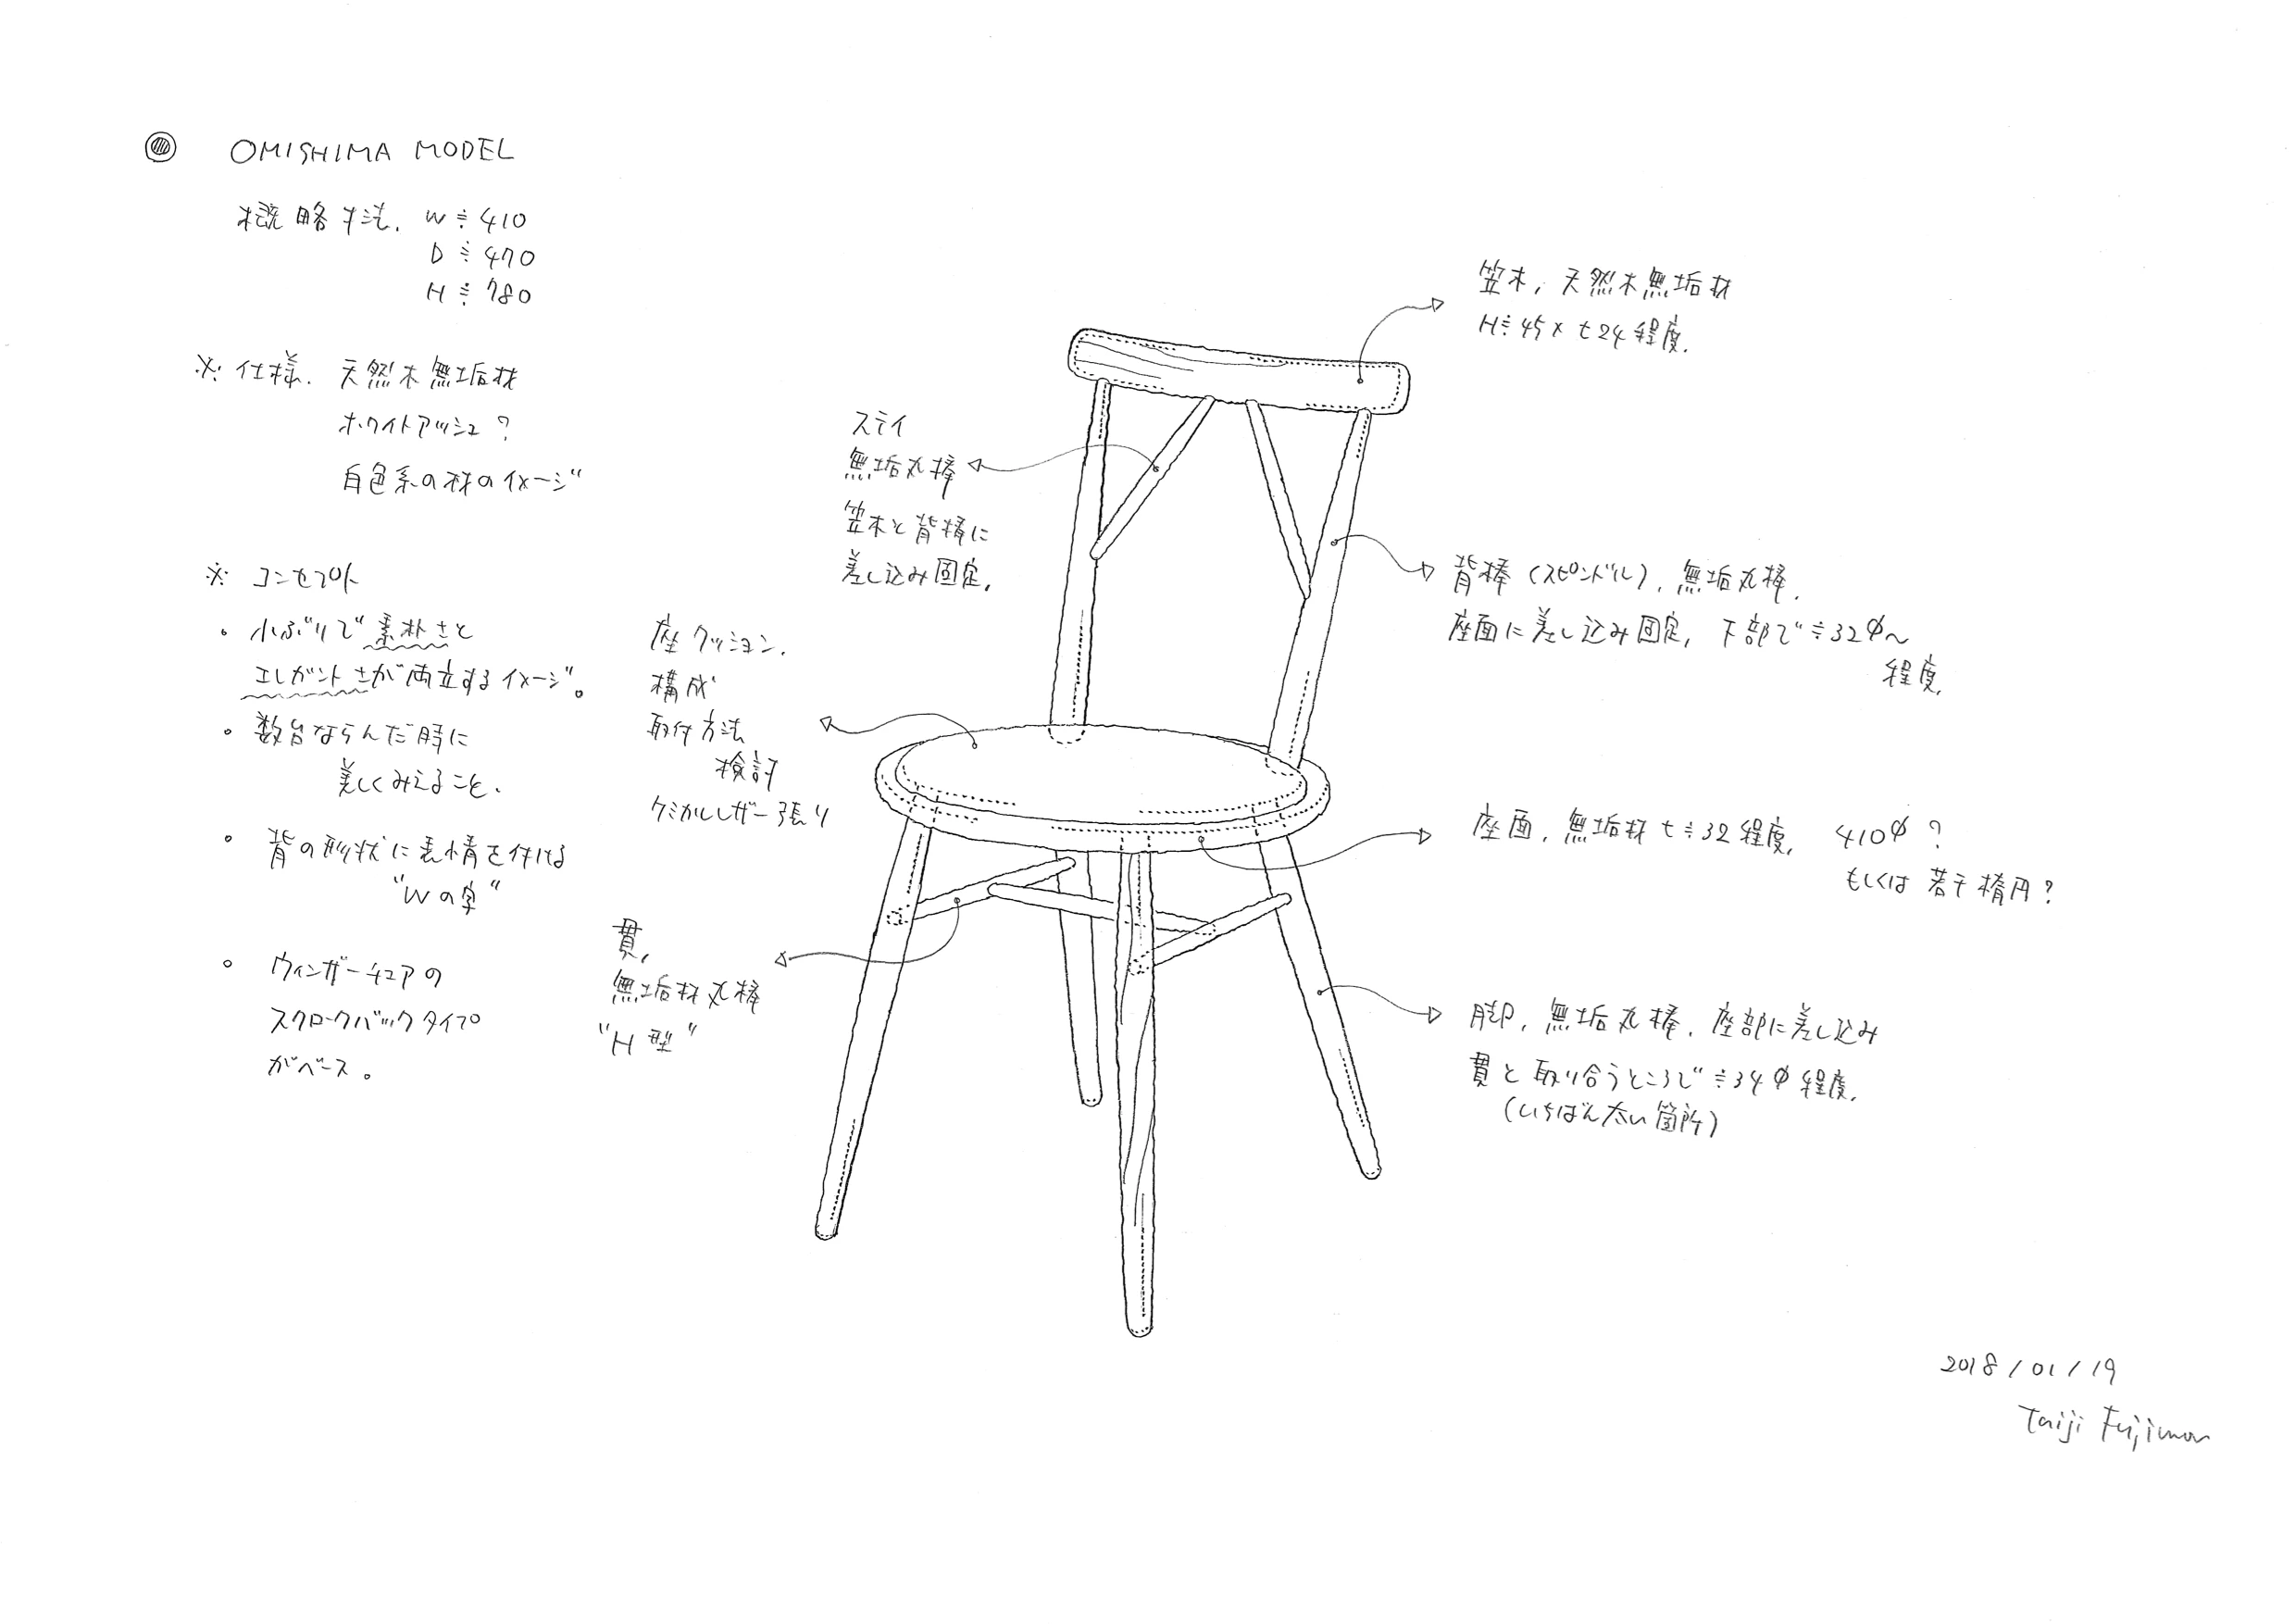 ◎ OMISHIMA MODEL
概略寸法. W≒410
D≒470
H≒780
※ 仕様. 天然木無垢材
ホワイトアッシュ?
白色系の材のイメージ
※ コンセプト
・小ぶりで素朴さと
エレガントさが両立するイメージ。
・数台ならんだ時に
美しくみえること.
・背の形状に表情を付ける
"Wの字"
・ウィンザーチェアの
スクロークバックタイプ
がベース。
ステイ
無垢丸棒
笠木と背棒に
差し込み固定.
座クッション.
構成
取付方法
検討
ケミカルレザー張り
貫,
無垢材丸棒
"H型"
笠木, 天然木無垢材
H≒45×t24程度.
背棒(スピンドル), 無垢丸棒.
座面に差し込み固定, 下部で≒32φ〜
程度.
座面, 無垢材t≒32程度, 410φ?
もしくは若干楕円?
脚, 無垢丸棒, 座部に差し込み
貫と取り合うところで≒34φ程度.
(いちばん太い箇所)
2018/01/19
Taiji Fujimori